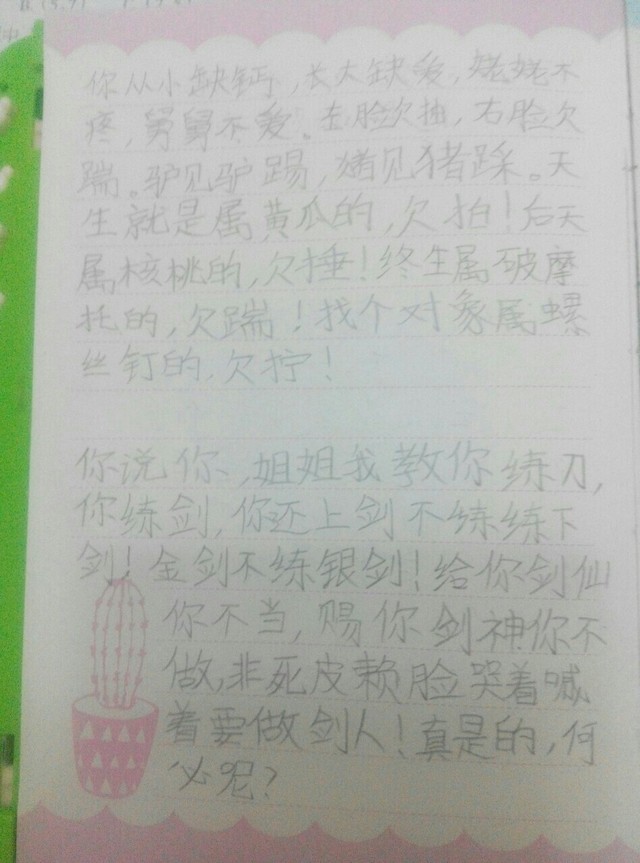 你从小缺钙,长大缺爱,姥姥不
疼,舅舅不爱。左脸欠抽,右脸欠
踹。驴见驴踢,猪见猪踩。天
生就是属黄瓜的,欠拍!后天
属核桃的,欠捶!终生属破摩
托的,欠踹!找个对象属螺
丝钉的,欠拧!
你说你,姐姐我教你练刀,
你练剑,你还上剑不练练下
剑!金剑不练银剑!给你剑仙
你不当,赐你剑神你不
做,非死皮赖脸哭着喊
着要做剑人!真是的,何
必呢?